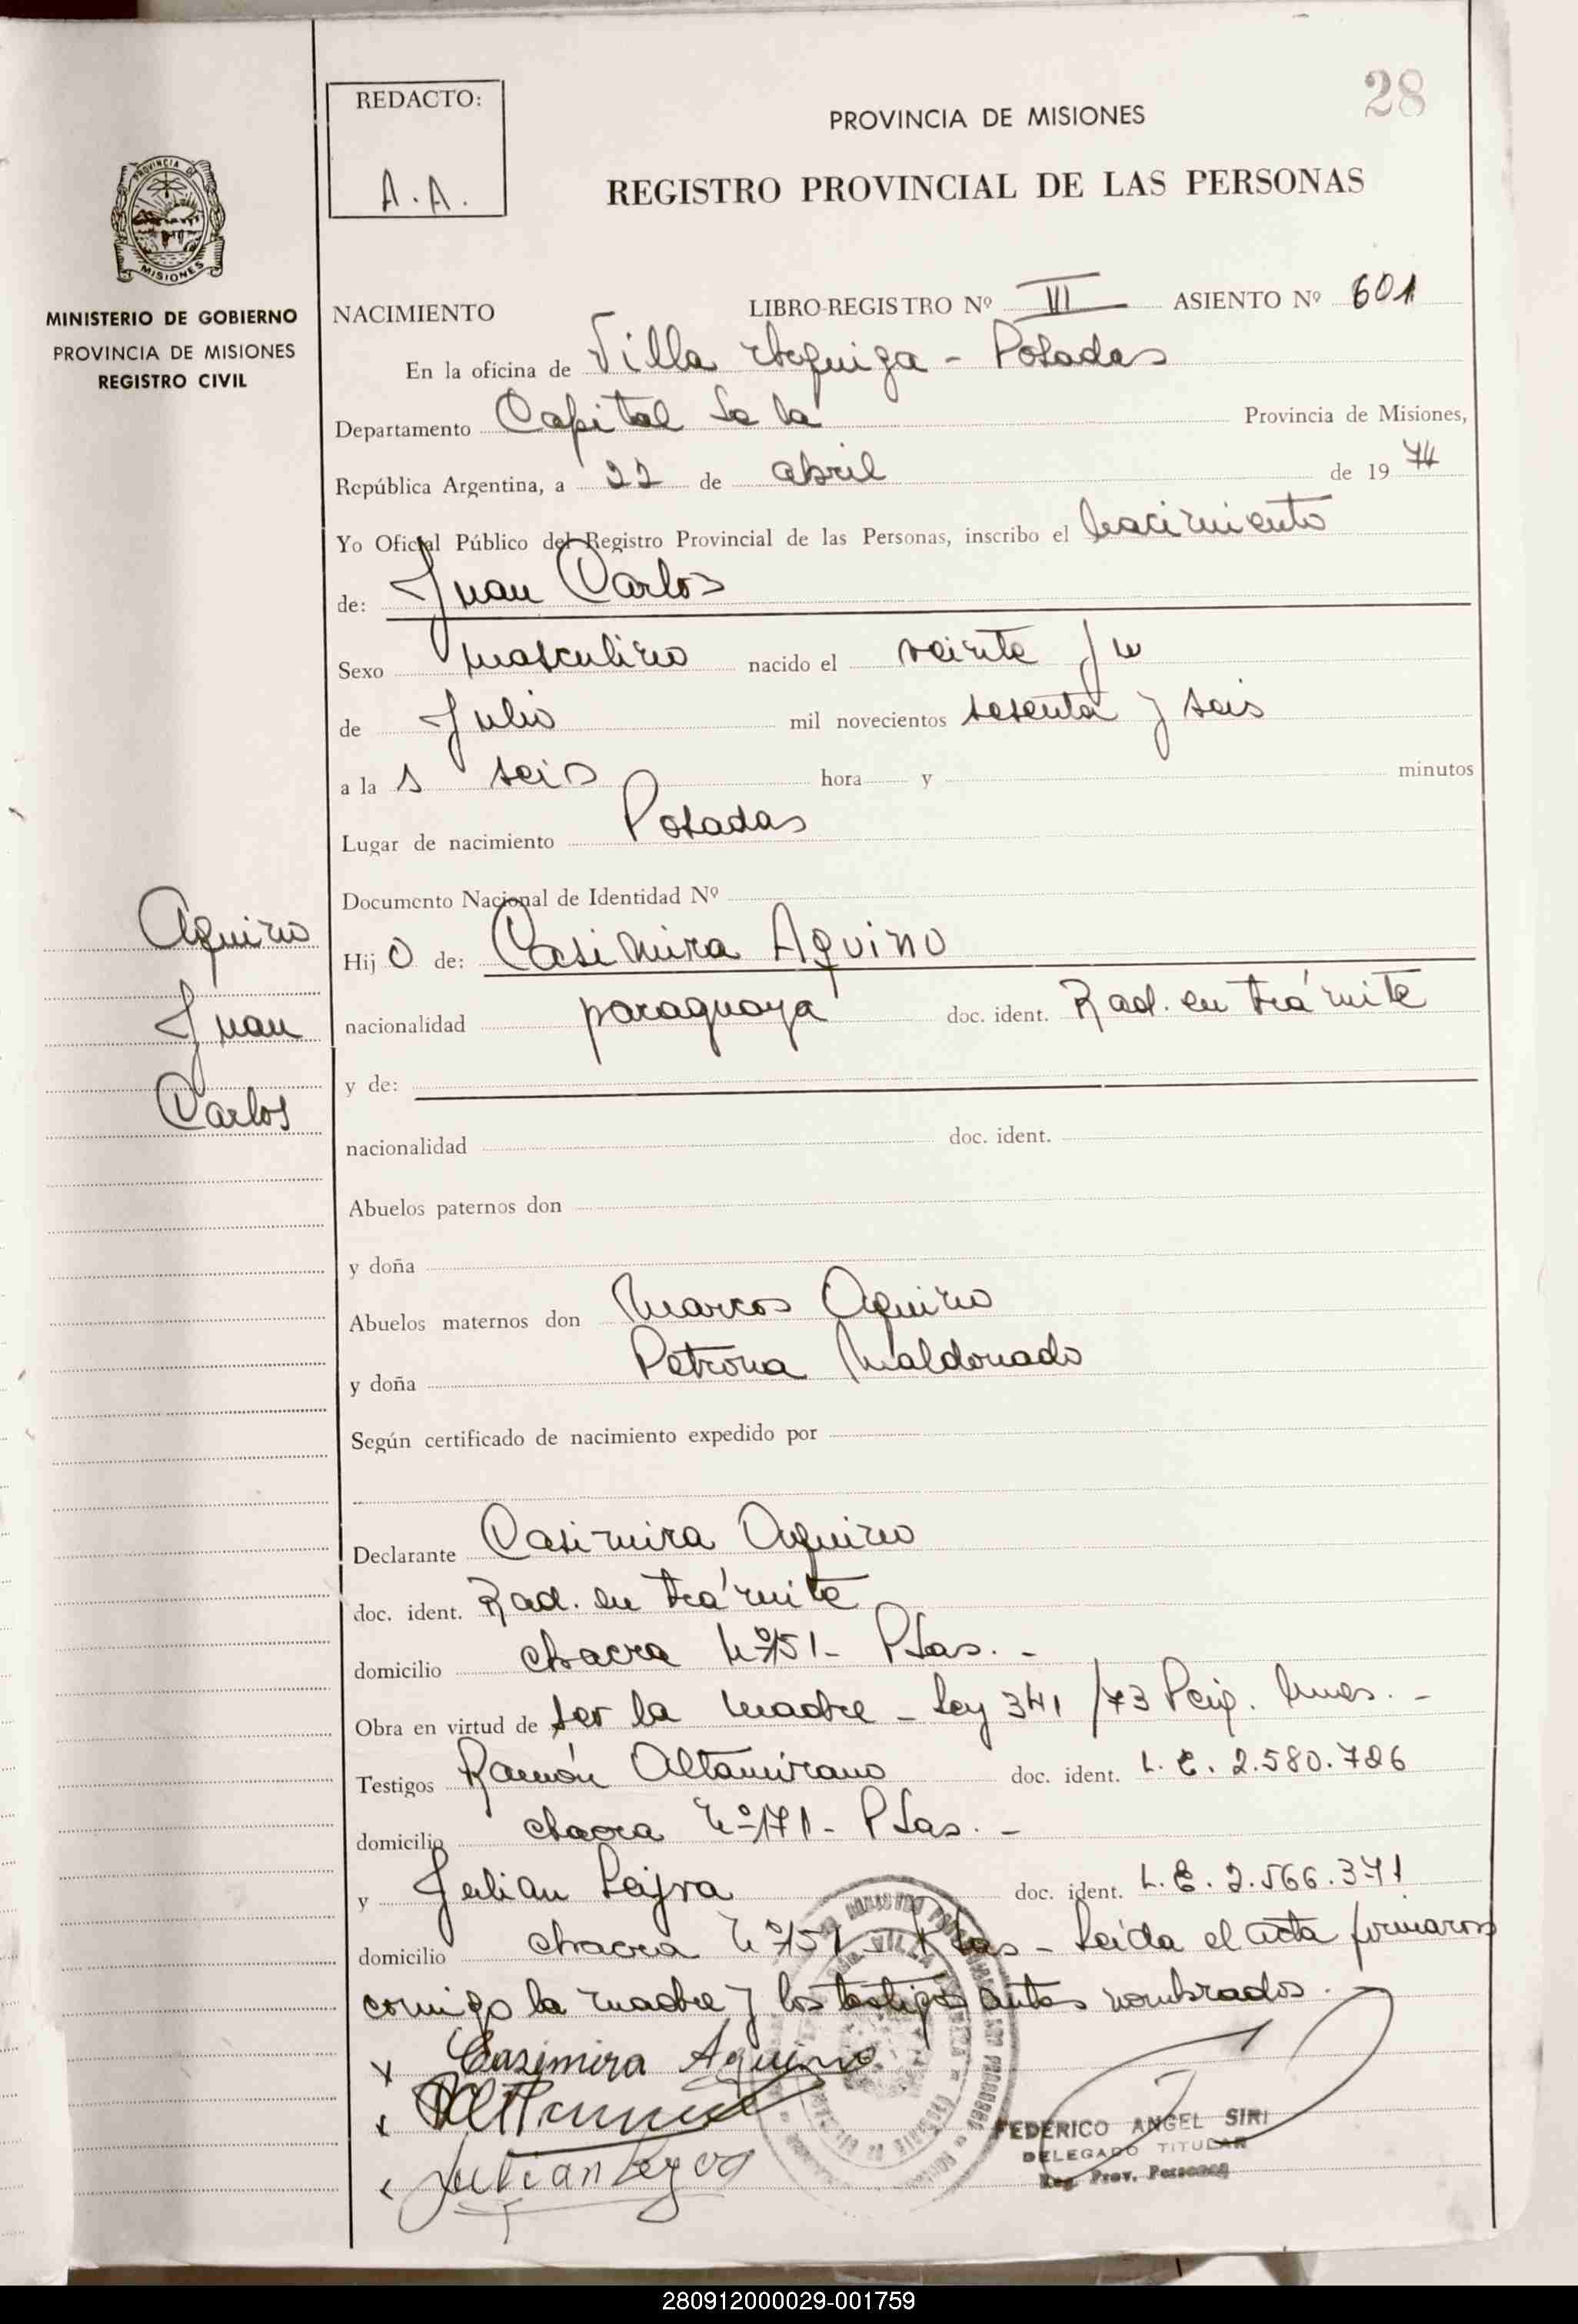 28
REDACTO:
A.A.
PROVINCIA DE MISIONES
REGISTRO PROVINCIAL DE LAS PERSONAS
PROVINCIA DE
MISIONES
MINISTERIO DE GOBIERNO
PROVINCIA DE MISIONES
REGISTRO CIVIL
NACIMIENTO LIBRO-REGISTRO Nº VI ASIENTO Nº 601
En la oficina de Villa - Posadas
Departamento Capital de la Provincia de Misiones,
República Argentina, a 22 de abril de 1974
Yo Oficial Público del Registro Provincial de las Personas, inscribo el nacimiento
de: Juan Carlos
Sexo masculino nacido el veinte y un
de Julio mil novecientos sesenta y seis
a la s seis hora y minutos
Lugar de nacimiento Posadas
Documento Nacional de Identidad Nº
Aquino
Juan
Carlos
Hij o de: Casimira Aquino
nacionalidad paraguaya doc. ident. Rad. en trámite
y de:
nacionalidad doc. ident.
Abuelos paternos don
y doña
Abuelos maternos don Marcos Aquino
y doña Petrona Maldonado
Según certificado de nacimiento expedido por
Declarante Casimira Aquino
doc. ident. Rad. en trámite
domicilio chacra Nº 151- Psas. -
Obra en virtud de ser la madre - Ley 341/73
Testigos Ramón Altamirano doc. ident. L. E. 2.580.786
domicilio chacra Nº 171- Psas. -
y Julian doc. ident. L. E. 2.566.371
domicilio chacra Nº 151 Psas - Leida el acta firmaron
comigo la madre y los testigos antes nombrados.
Casimira Aquino
Julian
FEDERICO ANGEL SIRI
DELEGADO TITULAR
Reg. Prov. Personas
280912000029-001759